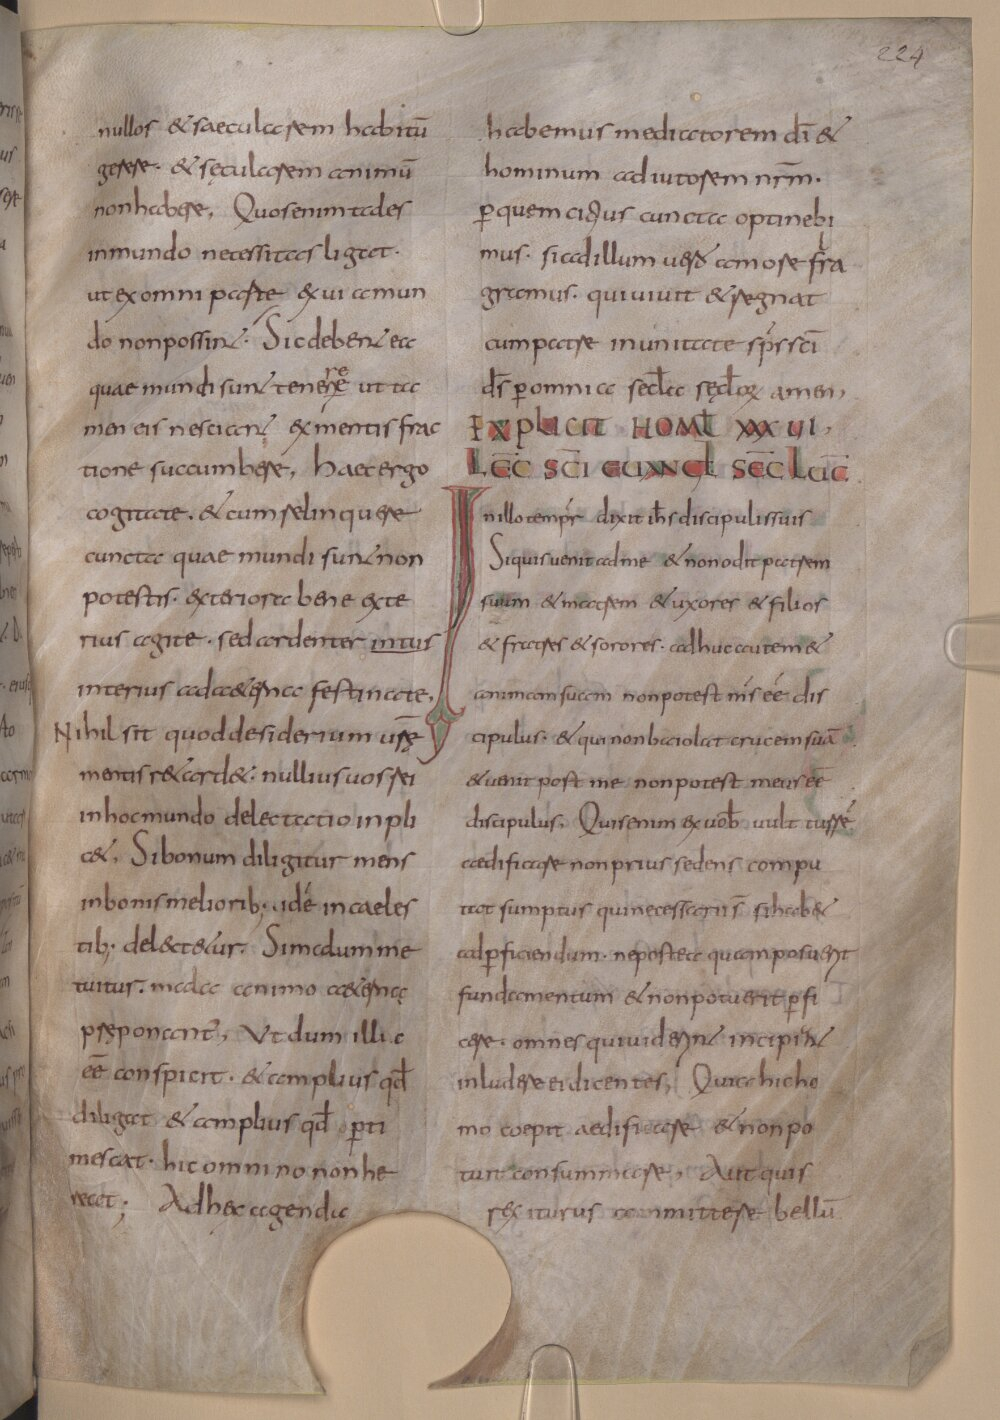 224
nullos & saecularem habitū
gerere. & sęcularem animū
non habere, Quos enim tales
in mundo necessitas ligat.
ut ex omni parte exui a mun
do non possin&. Sic deben& ea
quae mundi sun& tenere ut ta
men eis nescian& ex mentis frac
tione succumbere, haec ergo
cogitate. & cum relinquere
cuncta quae mundi sun& non
potestis. exteriora bene exte
rius agite. sed ardenter intus
interius ad aeterna festinate,
Nihil sit quod desiderium vr̄ę
mentis r&ard&. nullius vos rei
in hoc mundo delectatio inpli
c&, Si bonum diligitur mens
in bonis meliorib; id ē in caeles
tib; delect&ur. Si malum me
tuitur. mala animo aeterna
pręponant̄, Ut dum illic
eē conspicit. & amplius qđ
diligat & amplius qđ p̄ti
mescat. hic omnino non he
reat; Ad hęc agenda
habemus mediatorem dī &
hominum adiutorem nr̄m.
p̄ quem citius cuncta optinebi
mus. si ad illum vero amore fra
gramus. qui vivit & regnat
cum patre in unitate sp̄s sc̄i
ds̄ p̄ omnia secla secloꝝ amen,
EXPLICIT HOML XXXVI,
LEC̄ SC̄I EUANGL SEC̄ LUC̄
In illo tempr̄ dixit ih̄s discipulis suis
Si quis venit ad me & non odit patrem
suum & matrem & uxores & filios
& fratres & sorores. adhuc autem &
animam suam non potest m̄s eē dis
cipulus. & qui non baiolat crucem suā
& venit post me non potest meus eē
discipulus, Quis enim ex vob̄ vult turrē
aedificare non prius sedens compu
tat sumptus qui necessarii s̄ si hab&
ad p̄ficiendum. ne postea quam posuerit
fundamentum & non potuerit p̄fi
cere. omnes qui viderin& incipian&
inludere ei dicentes, Quia hic ho
mo coepit aedificare & non po
tuit consummare, Aut quis
rex iturus committere bellū